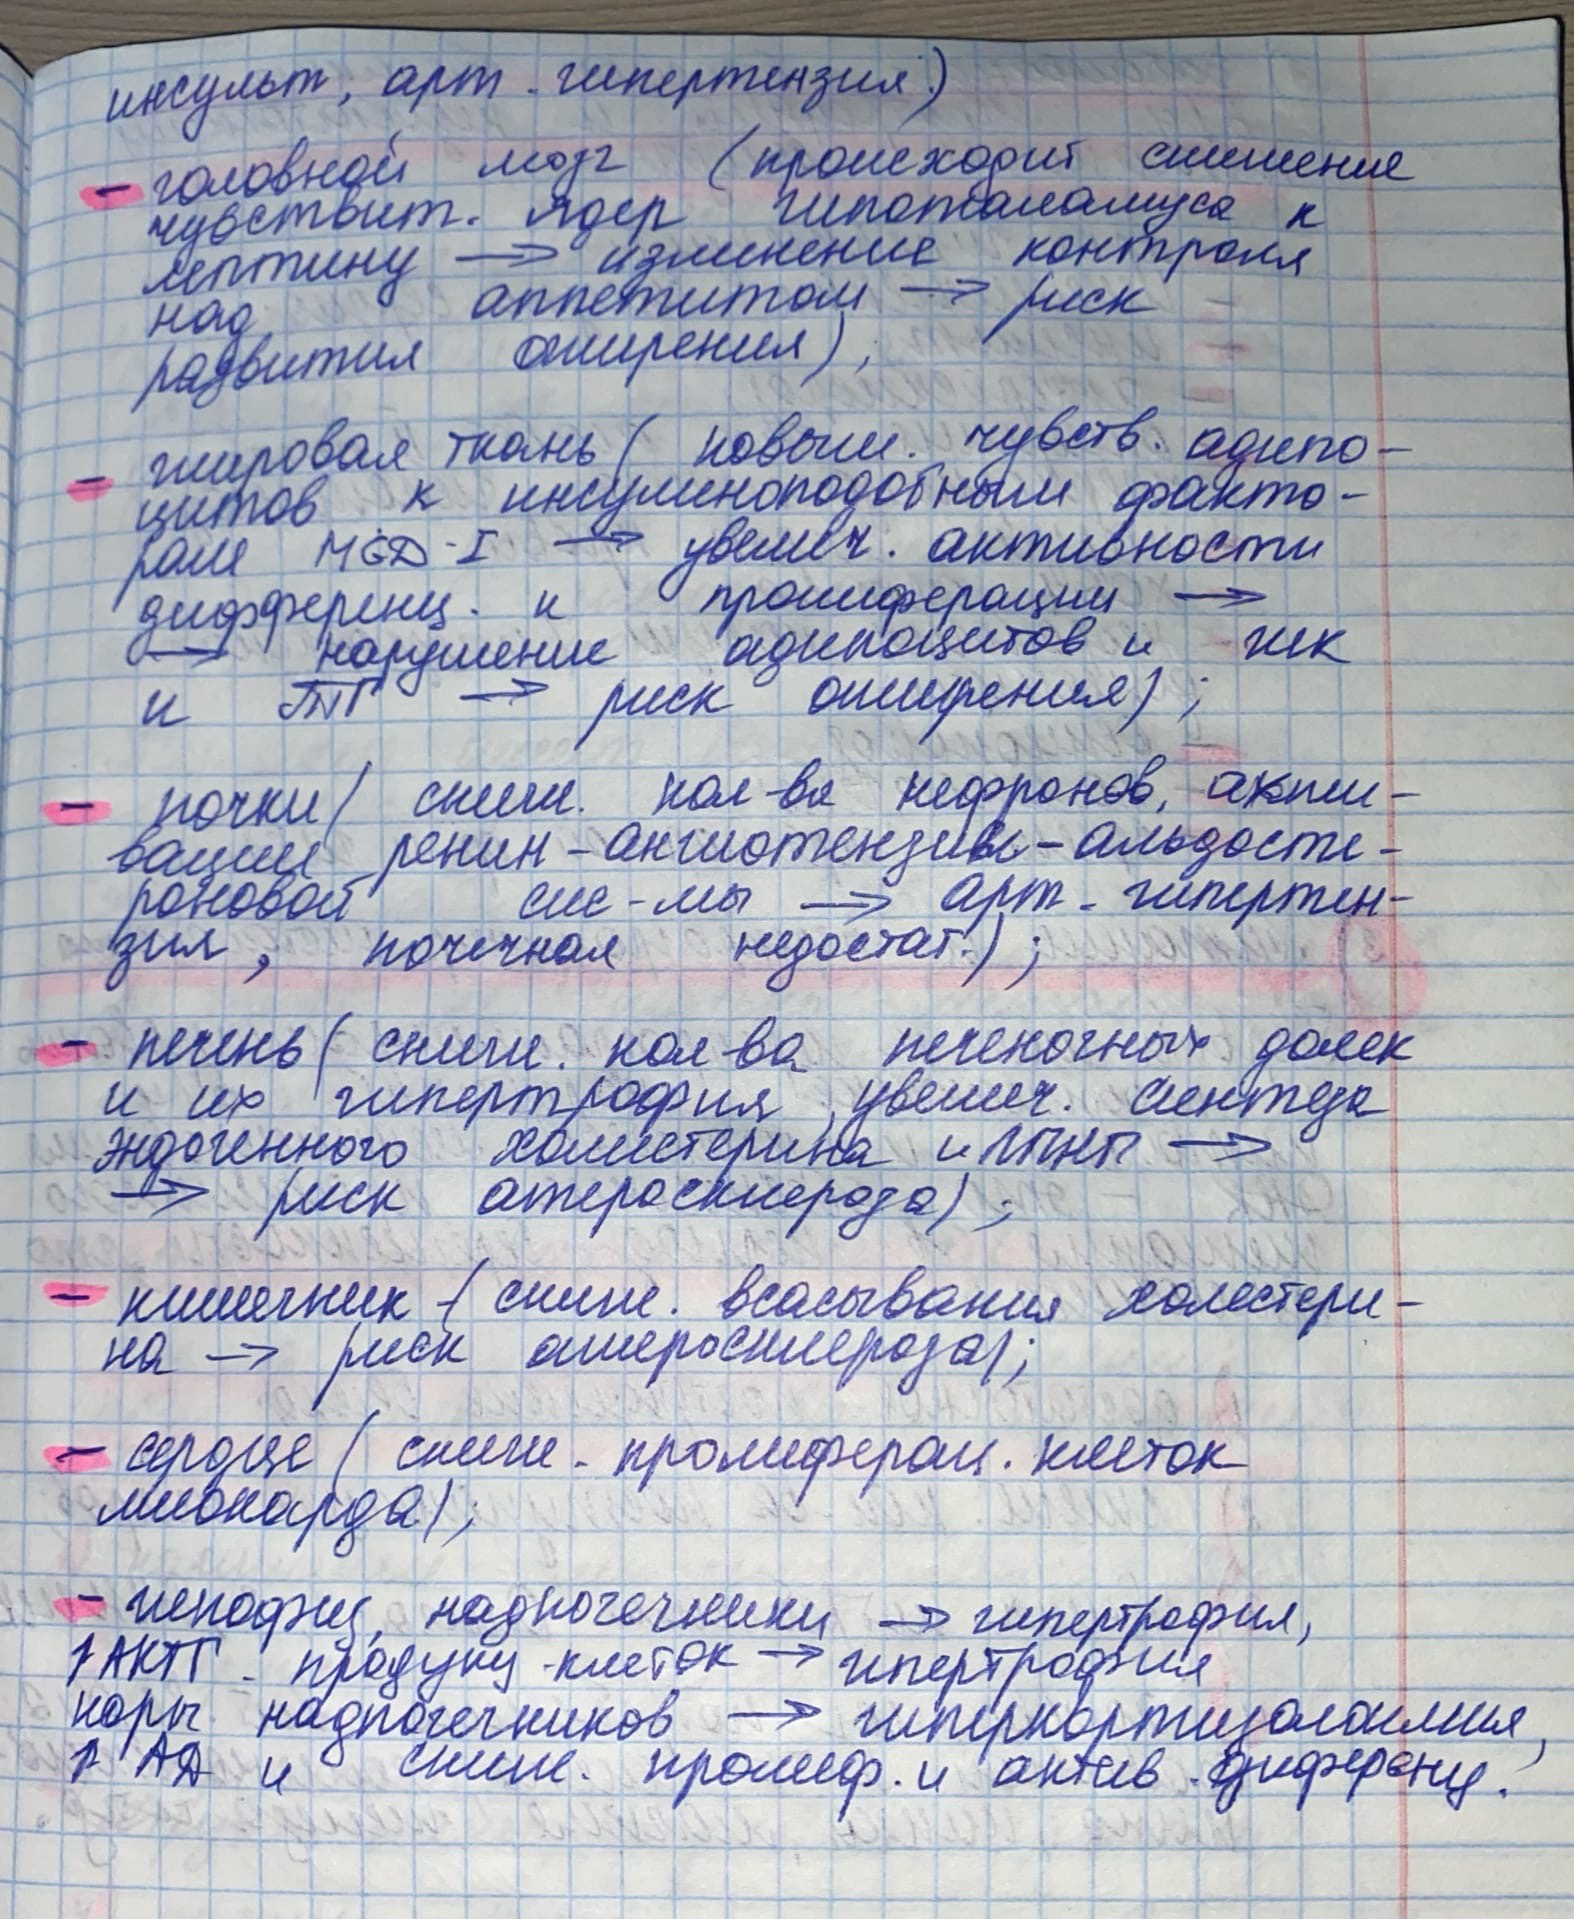 инсульт, арт. гипертензия)
- головной мозг (происходит снижение
чувствит. ядер гипоталамуса к
лептину → изменение контроля
над аппетитом → риск
развития ожирения);
- жировая ткань ( повыш. чувств. адипо-
цитов к инсулиноподобным факто-
рам → увелич. активности
дифференц. и пролиферации →
→ нарушение адипоцитов и жк
и ТГ → риск ожирения);
- почки ( сниж. кол-ва нефронов, акти-
вации ренин-ангиотензин-альдосте-
роновой сис-мы → арт. гипертен-
зия, почечная недостат.);
- печень ( сниж. кол-ва печеночных долек
и их гипертрофия, увелич. синтеза
эндогенного холестерина и ЛПНП →
→ риск атеросклероза);
- кишечник - ( сниж. всасывания холестери-
на → риск атеросклероза);
- сердце ( сниж. пролиферац. клеток
миокарда);
- гипофиз, надпочечники → гипертрофия,
↑ АКТГ - продуц. клеток → гипертрофия
коры надпочечников → гиперкортизолемия,
↑ АД и сниж. пролиф. и актив. диференц.